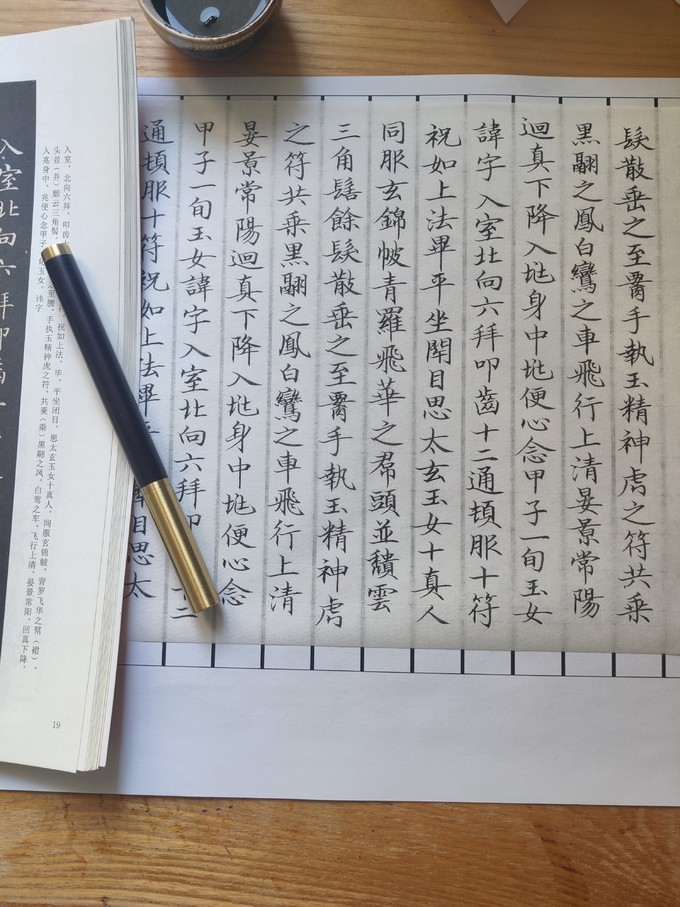 髮散垂之至腰手執玉精神虎之符共乘
黑翮之鳳白鸞之車飛行上清晏景常陽
迴真下降入兆身中兆便心念甲子一旬玉女
諱字入室北向六拜叩齒十二通頓服十符
祝如上法畢平坐閉目思太玄玉女十真人
同服玄錦帔青羅飛華之帬頭並穨雲
三角髻餘髮散垂之至腰手執玉精神虎
之符共乘黑翮之鳳白鸞之車飛行上清
晏景常陽迴真下降入兆身中兆便心念
甲子一旬玉女諱字入室北向六拜叩二
通頓服十符祝如上法畢目思太
入室，北向六拜，叩齿祝如上法，毕，平坐闭目，思太玄玉女十真人，同服玄锦帔，青罗飞华之帬（裙），
头並（并）颓云三角髻，之至腰，手执玉精神虎之符，共乗（乘）黑翮之凤，白鸾之车，飞行上清，晏景常阳，回真下降，
入兆身中，兆便心念甲子玉女，讳字
入室北向六拜叩齒
19